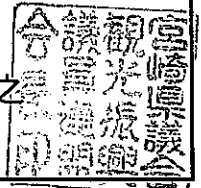 宮崎県議会
観光振興
議員連盟
会長印
之